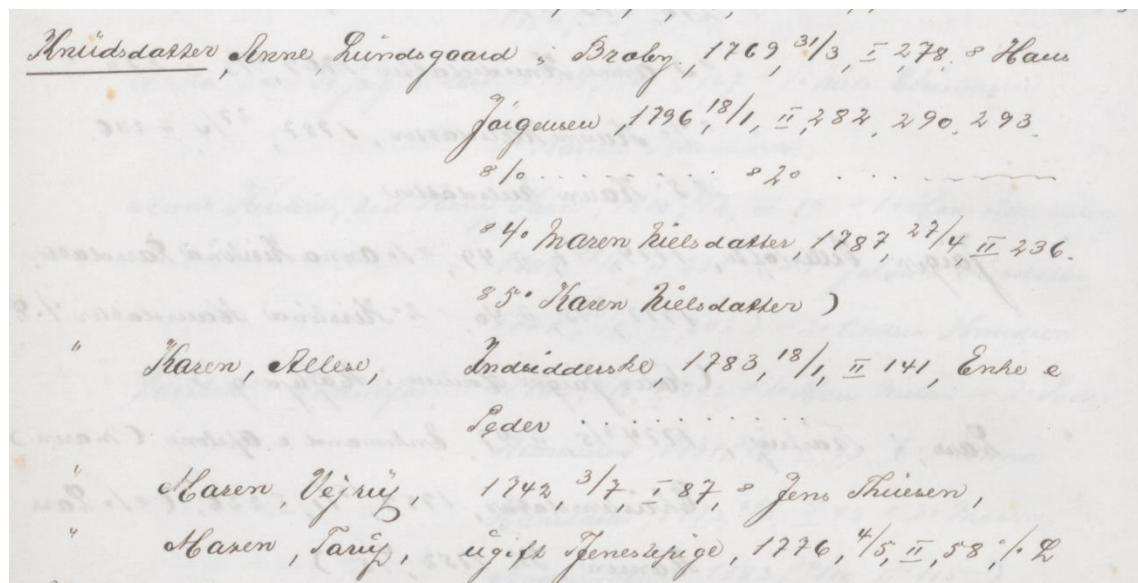 Knüdsdatter, Anne, Lündsgaard i Broby, 1769, 31/3, I 278. 8 Hans
Jörgensen, 1796, 18/1, II, 282, 290, 293.
8/o . . . . . . . . . . 8 2o . . . . . .
8 4o Maren Nielsdatter, 1787, 27/4, II 236.
8 5o Karen Nielsdatter )
" Karen, Allese, Indsidderske, 1783, 18/1, II 141, Enke e
Peder . . . . . . . . . .
" Maren Vejrüp, 1742, 3/7, I 87, 8 Jens Thuesen,
" Maren, Tarüp, ügift Tjenestepige, 1776, 4/5, II, 58, %